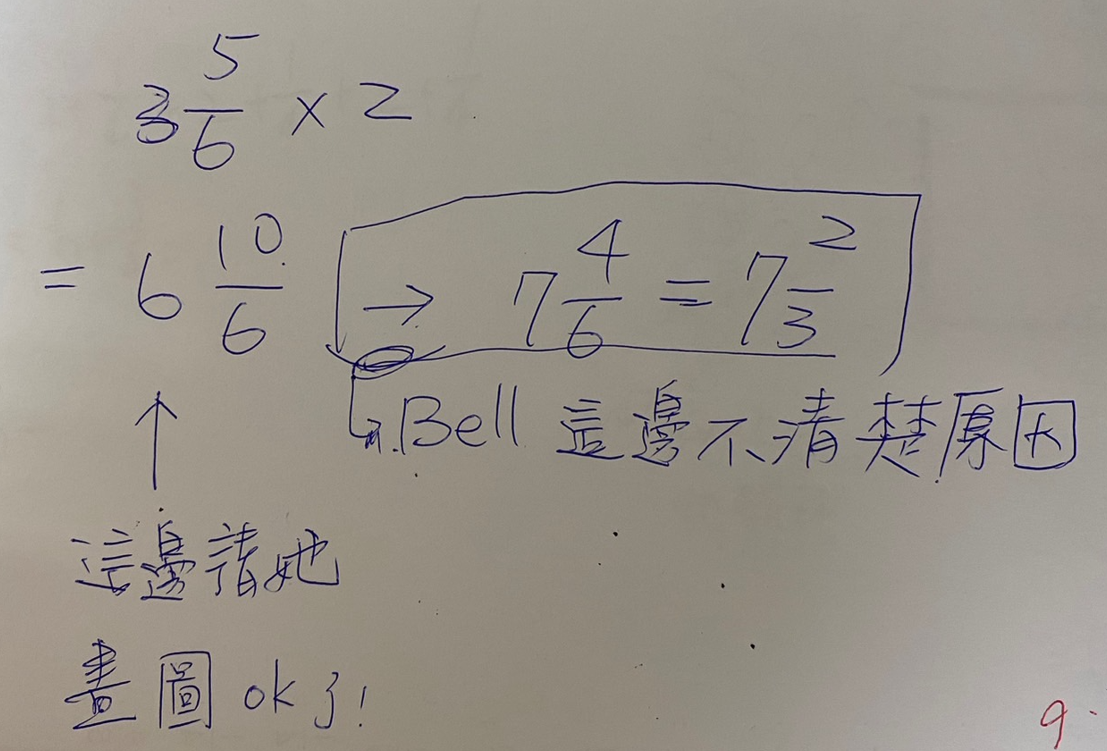 3 5/6 × 2
= 6 10/6 → 7 4/6 = 7 2/3
Bell 這邊不清楚原因
這邊請她
畫圖 ok了!
9.